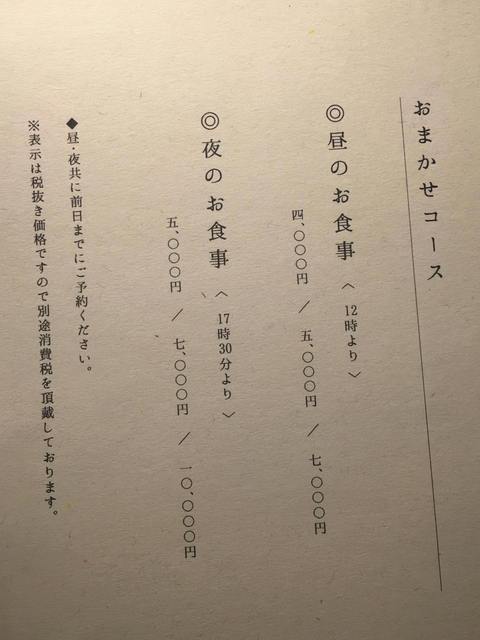 おまかせコース
◎昼のお食事〈12時より〉
四、〇〇〇円 / 五、〇〇〇円 / 七、〇〇〇円
◎夜のお食事〈17時30分より〉
五、〇〇〇円 / 七、〇〇〇円 / 一〇、〇〇〇円
◆昼・夜共に前日までにご予約ください。
※表示は税抜き価格ですので別途消費税を頂戴しております。